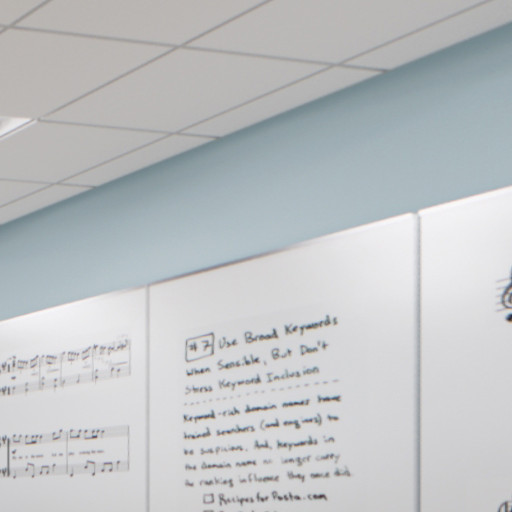 #7 Use Broad Keywords
When Sensible, But Don't
Stress Keyword Inclusion
Keyword-rich domain names have
trained searchers (and engines) to
be suspicious. And, keywords in
the domain name no longer carry
the ranking influence they once did.
Recipes for Pasta.com